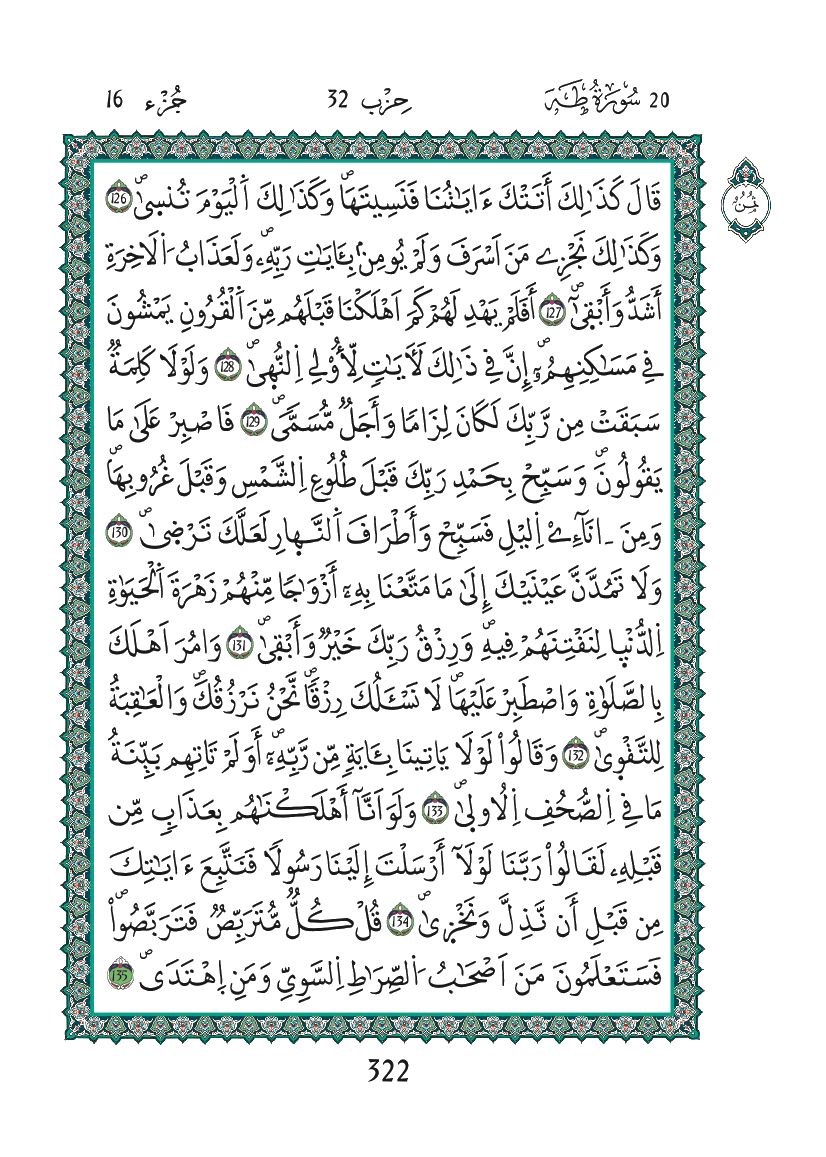 20 سُورَةُ طَهَ حِزْب 32 جُزْء 16
ثُمُنُ
قَالَ كَذَٰلِكَ أَتَتْكَ ءَايَٰتُنَا فَنَسِيتَهَاۖ وَكَذَٰلِكَ اَ۬لْيَوْمَ تُنس۪ىٰۖ 126
وَكَذَٰلِكَ نَجْزِے مَنَ اَسْرَفَ وَلَمْ يُومِنۢ بِـَٔايَٰتِ رَبِّهِۦۖ وَلَعَذَابُ اُ۬لَاخِرَةِ
أَشَدُّ وَأَبْق۪ىٰٓۖ 127 أَفَلَمْ يَهْدِ لَهُمْ كَمَ اَهْلَكْنَا قَبْلَهُم مِّنَ اَ۬لْقُرُونِ يَمْشُونَ
فِے مَسَٰكِنِهِمُۥٓۖ إِنَّ فِے ذَٰلِكَ لَأٓيَٰتٖ لِّأُوْلِے اِ۬لنُّه۪ىٰۖ 128 وَلَوْلَا كَلِمَةٞ
سَبَقَتْ مِن رَّبِّكَ لَكَانَ لِزَامٗا وَأَجَلٞ مُّسَمّٗىۖ 129 فَاصْبِرْ عَلَىٰ مَا
يَقُولُونَۖ وَسَبِّحْ بِحَمْدِ رَبِّكَ قَبْلَ طُلُوعِ اِ۬لشَّمْسِ وَقَبْلَ غُرُوبِهَاۖ
وَمِنَ اٰنَآءِےْ اِ۬ليْلِ فَسَبِّحْ وَأَطْرَافَ اَ۬لنَّه۪ارِ لَعَلَّكَ تَرْض۪ىٰۖ 130
وَلَا تَمُدَّنَّ عَيْنَيْكَ إِلَىٰ مَا مَتَّعْنَا بِهِۦٓ أَزْوَٰجٗا مِّنْهُمْ زَهْرَةَ اَ۬لْحَيَوٰةِ
اِ۬لدُّنْي۪ا لِنَفْتِنَهُمْ فِيهِۖ وَرِزْقُ رَبِّكَ خَيْرٞ وَأَبْق۪ىٰۖ 131 وَامُرَ اَهْلَكَ
بِالصَّلَوٰةِ وَاصْطَبِرْ عَلَيْهَاۖ لَا نَسْـَٔلُكَ رِزْقٗاۖ نَّحْنُ نَرْزُقُكَۖ وَالْعَٰقِبَةُ
لِلتَّقْو۪ىٰۖ 132 وَقَالُواْ لَوْلَا يَاتِينَا بِـَٔايَةٖ مِّن رَّبِّهِۦٓۖ أَوَلَمْ تَاتِهِم بَيِّنَةُ
مَا فِے اِ۬لصُّحُفِ اِ۬لُاول۪ىٰۖ 133 وَلَوَ اَنَّآ أَهْلَكْنَٰهُم بِعَذَابٖ مِّن
قَبْلِهِۦ لَقَالُواْ رَبَّنَا لَوْلَآ أَرْسَلْتَ إِلَيْنَا رَسُولٗا فَنَتَّبِعَ ءَايَٰتِكَ
مِن قَبْلِ أَن نَّذِلَّ وَنَخْز۪ىٰۖ 134 قُلْ كُلّٞ مُّتَرَبِّصٞ فَتَرَبَّصُواْۖ
فَسَتَعْلَمُونَ مَنَ اَصْحَٰبُ اُ۬لصِّرَٰطِ اِ۬لسَّوِيِّ وَمَنِ اِ۪هْتَد۪ىٰۖ 135
322